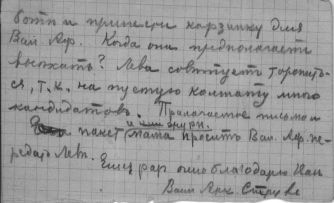 боты и принесем корзинку для
Вал. Аф. Когда они предполагаете
выехать? Лева советует торопить-
ся, т.к. на пустую комнату много
кандидатов. Прилагаемое письмо
и или других.
пакет мама просить Вал. Аф. пе-
редать Леве. Еще раз благодарю Вас
Ваш Струве